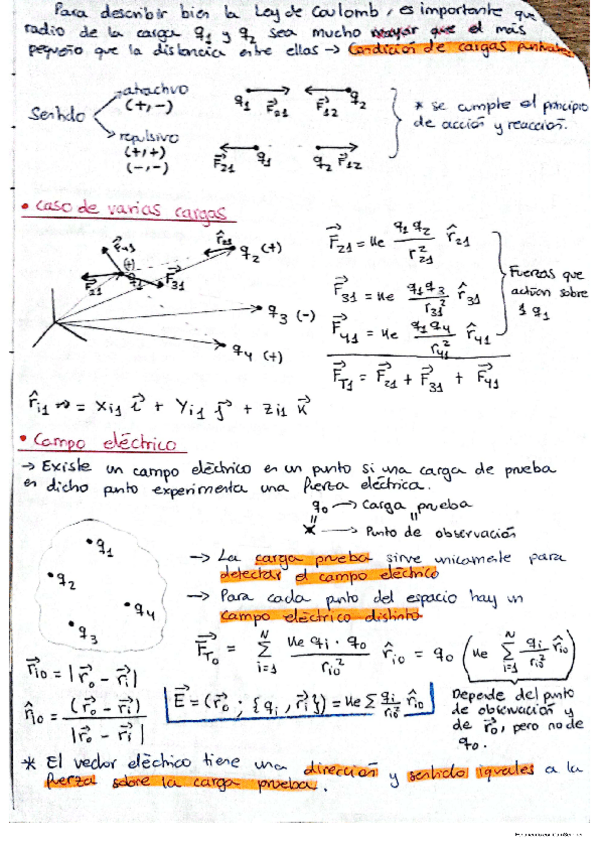 Para describir bien la Ley de Coulomb, es importante que
radio de la carga q₁ y q₂ sea mucho mayor que el más
pequeño que la distancia entre ellas → Condición de cargas puntuales
Sentido
atractivo
(+,-)
repulsivo
(+,+)
(-,-)
q₁ F⃗₂₁ F⃗₁₂ q₂
F⃗₂₁ q₁ q₂ F⃗₁₂
* se cumple el principio
de acción y reacción.
• Caso de varias cargas
F⃗₄₁ (+) q₁ F⃗₂₁ F⃗₃₁
r̂₂₁ q₂ (+)
q₃ (-)
q₄ (+)
F⃗₂₁ = Ke q₁q₂/r₂₁² r̂₂₁
F⃗₃₁ = Ke q₁q₃/r₃₁² r̂₃₁
F⃗₄₁ = Ke q₁q₄/r₄₁² r̂₄₁
F⃗T₁ = F⃗₂₁ + F⃗₃₁ + F⃗₄₁
Fuerzas que
actúan sobre
q₁
r̂i₁ ⇒ = xi₁ i⃗ + yi₁ j⃗ + zi₁ k⃗
• Campo eléctrico
→ Existe un campo eléctrico en un punto si una carga de prueba
en dicho punto experimenta una fuerza eléctrica.
q₀ → Carga prueba
* → Punto de observación
q₁
q₂
q₄
q₃
→ La carga prueba sirve unicamente para
detectar el campo eléctrico
→ Para cada punto del espacio hay un
campo eléctrico distinto
F⃗T₀ = Σ i=1 N Ke qi · q₀/ri₀² r̂i₀ = q₀ (Ke Σ i=1 N qi/ri₀² r̂i₀)
r⃗i₀ = |r⃗₀ - r⃗i|
r̂i₀ = (r⃗₀ - r⃗i)/|r⃗₀ - r⃗i|
E⃗ = (r⃗₀ ; {qi, r⃗i}) = Ke Σ qi/ri₀² r̂i₀
Depende del punto
de observación y
de r⃗₀, pero no de
q₀.
* El vector eléctrico tiene una dirección y sentido iguales a la
fuerza sobre la carga prueba.